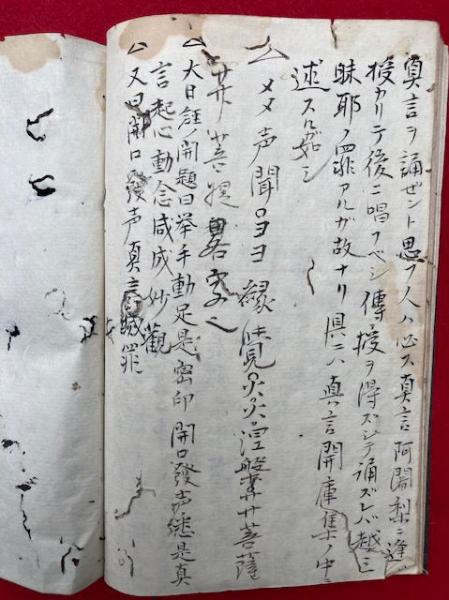 真言ヲ誦ゼント思フ人ハ必ス真言阿闍梨ニ逢
授カリテ後ニ唱フベシ傳授ヲ得ズシテ誦ズレバ越三
昧耶ノ罪アルガ故ナリ具ニハ真言開庫集ノ中ニ
述スルガ如シ
△メメ声聞 ヨヨ縁覚 涅槃 菩薩
菩提 畧字也
△大日経ノ開題曰挙手動足是密印開口發声悉是真
言起心動念咸成妙觀
△又曰開口發声真言滅罪